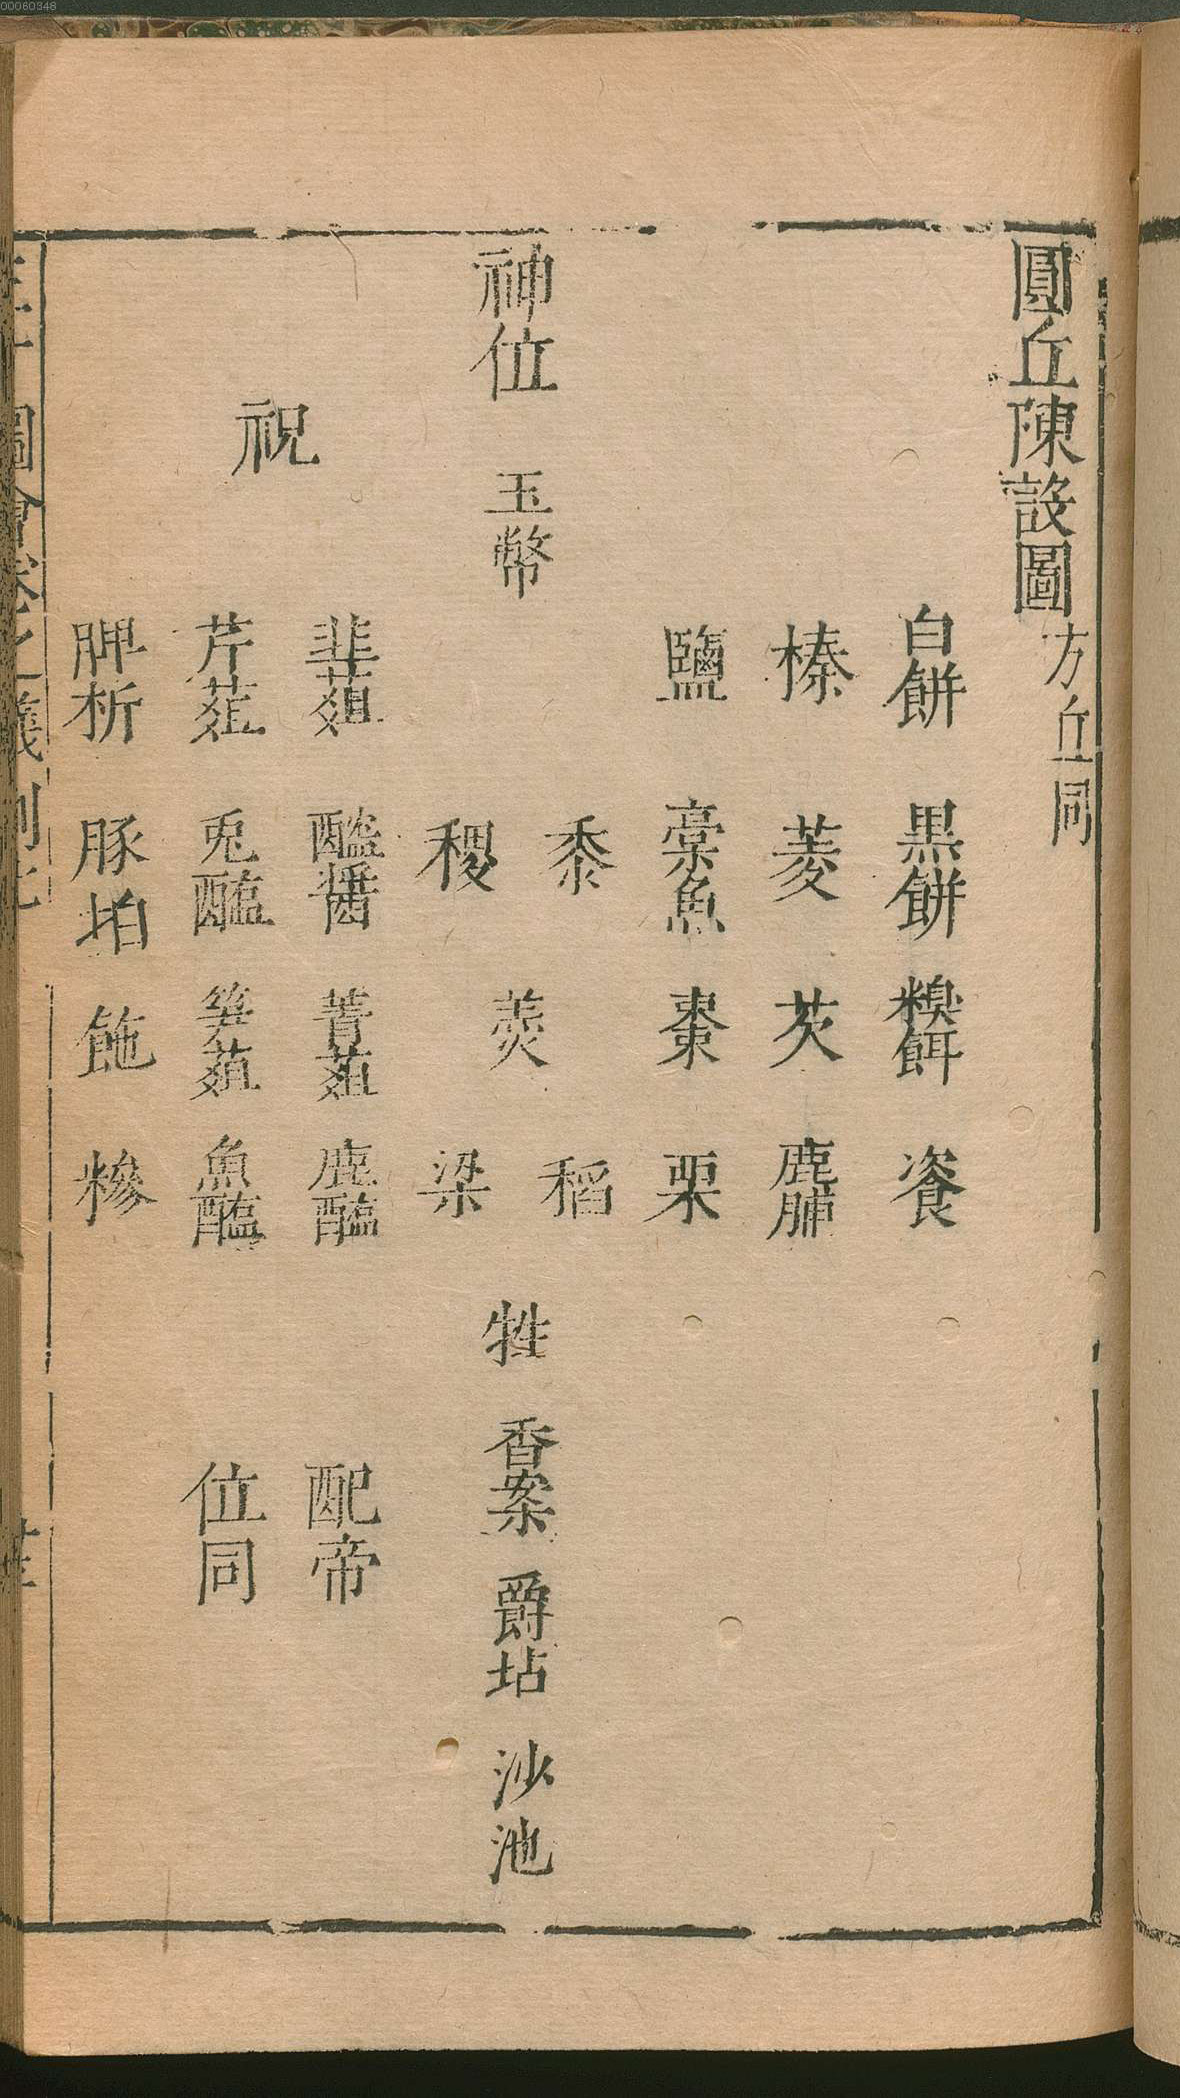 圓丘陳設圖方丘同
白餅 黒餅 糗餌 餈
榛 菱 芡 鹿脯
鹽 藁魚 棗 栗
黍 稻
神位 玉幣 羹 牲 香案 爵坫 沙池
稷 粱
韭葅 醯醬 菁葅 鹿醢 配帝
祝
芹葅 兎醢 笋葅 魚醢 位同
脾析 豚拍 䬳 糝
00060348